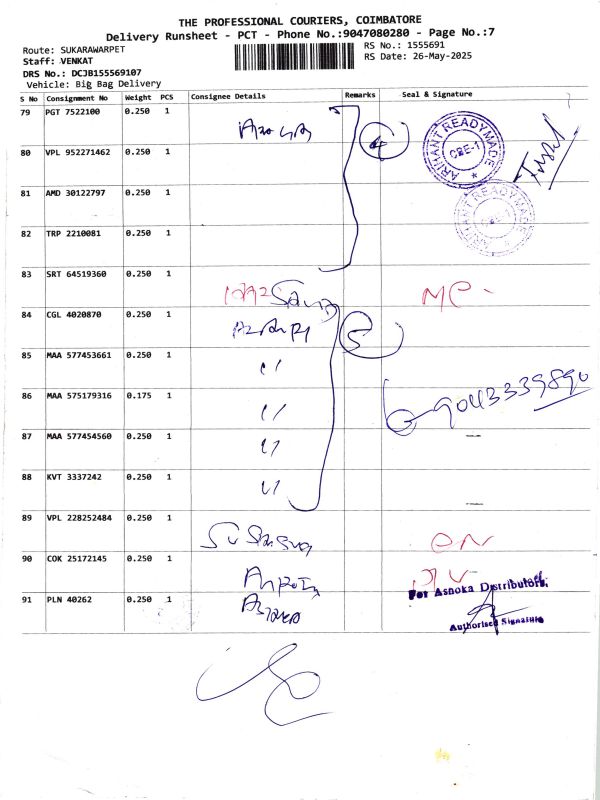 THE PROFESSIONAL COURIERS, COIMBATORE
Delivery Runsheet - PCT - Phone No.:9047080280 - Page No.:7
Route: SUKARAWARPET
RS No.: 1555691
Staff: VENKAT
RS Date: 26-May-2025
DRS No.: DCJB155569107
Vehicle: Big Bag Delivery
S No Consignment No Weight PCS Consignee Details Remarks Seal & Signature
79 PGT 7522100 0.250 1
4
ARIHANT READYMADE CBE-1
80 VPL 952271462 0.250 1
81 AMD 30122797 0.250 1
ARIHANT READYMADE
82 TRP 2210081 0.250 1
83 SRT 64519360 0.250 1
84 CGL 4020870 0.250 1
5
85 MAA 577453661 0.250 1 "
86 MAA 575179316 0.175 1 " 9043339890
87 MAA 577454560 0.250 1 "
88 KVT 3337242 0.250 1 "
89 VPL 228252484 0.250 1
90 COK 25172145 0.250 1
For Ashoka Distributors,
91 PLN 40262 0.250 1
Authorised Signature